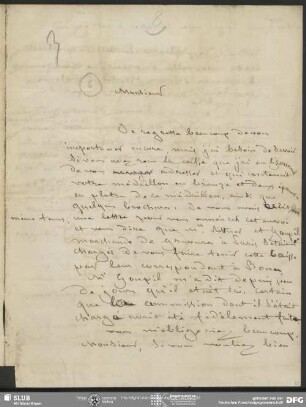 Monsieur
Je regrette beaucoup de vous
importuner encore mais j'ai besoin de savoir
si vous avez reçu la caisse que j'ai eu
de vous adresser et qui contenait
votre médaillon en bronze et deux
en plâtre de ce médaillon, ainsi que
quelques brochures. Je vous avais
une lettre pour vous annoncer cet envoi
et vous dire que Mrs Rittner et Goupil
marchands de gravures à Paris s'étaient
chargés de vous faire tenir cette caisse
par leur correspondant à
Mr Goupil m'a dit depuis peu
de jours qu'il était certain
que la commission dont il s'était
chargé avait été fidèlement faite
vous m'obligeriez beaucoup
Monsieur, si vous vouliez bien
SLUB
DFG